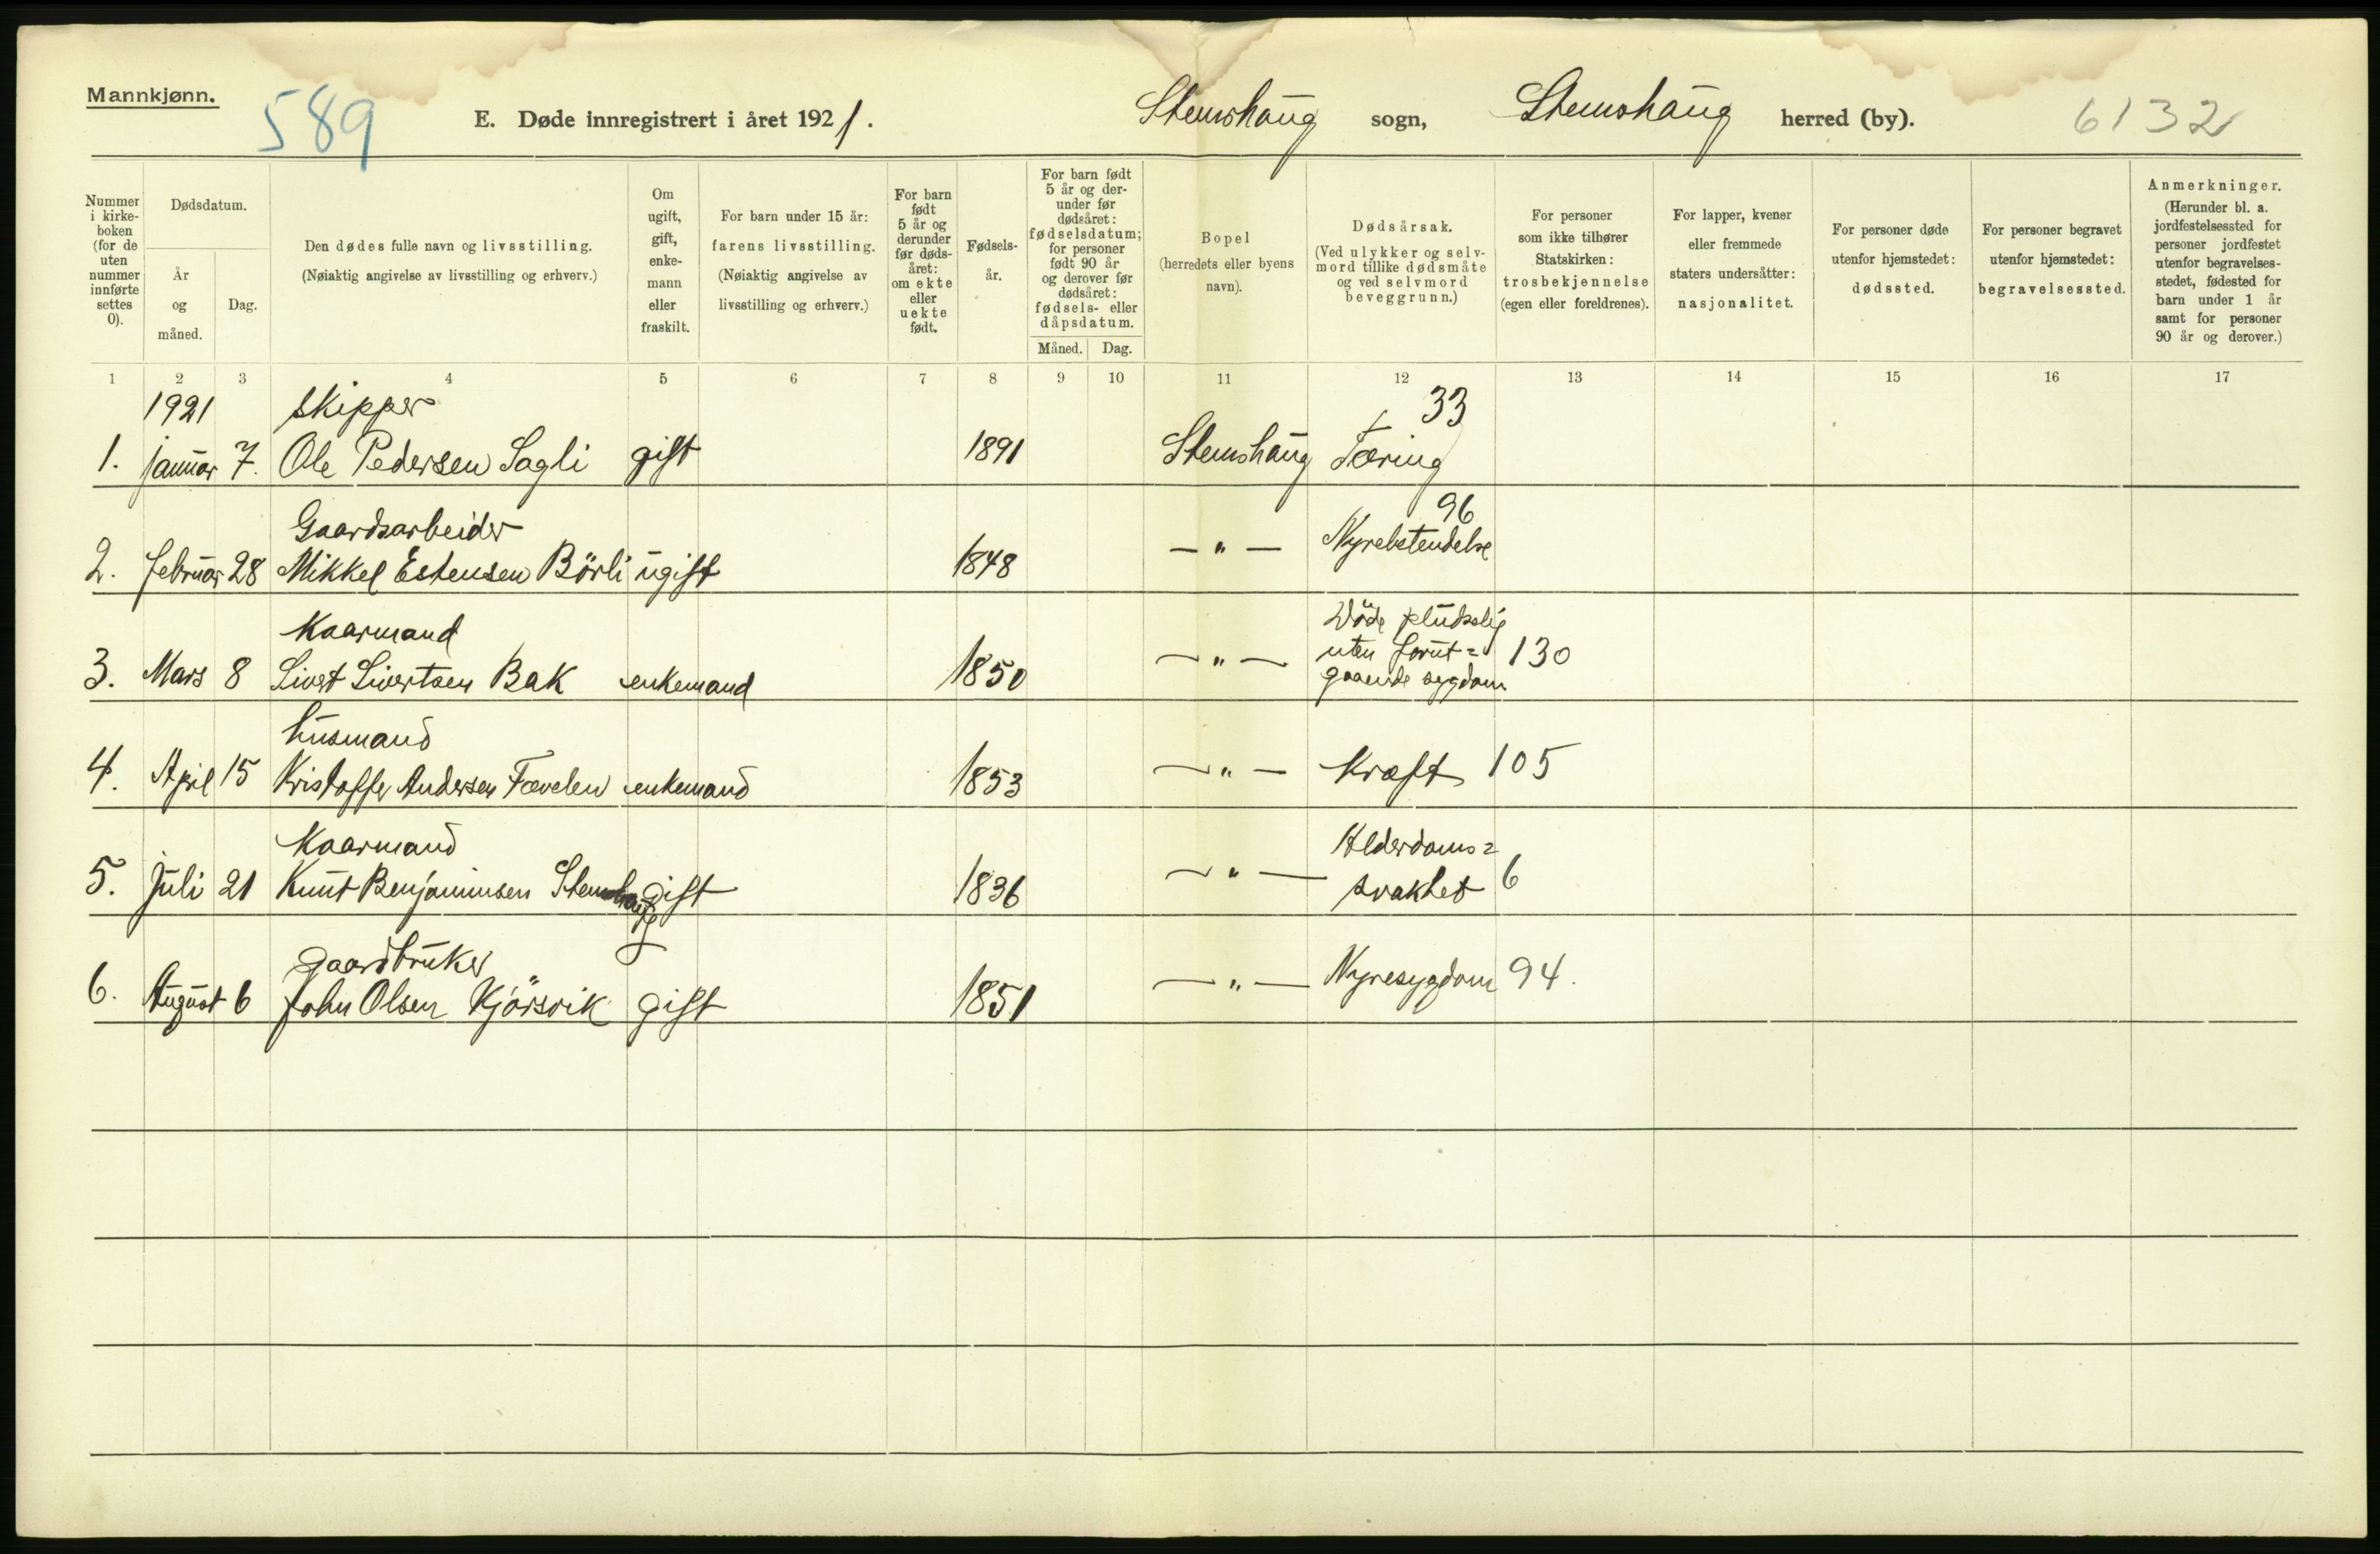 Mannkjønn.
589
E. Døde innregistrert i året 1921.
Stemshaug sogn, Stemshaug herred (by).
6132
Nummer i kirke-boken (for de uten nummer innførte settes 0).
Dødsdatum.
År og måned.
Dag.
Den dødes fulle navn og livsstilling.
(Nøiaktig angivelse av livsstilling og erhverv.)
Om ugift, gift, enke-mann eller fraskilt.
For barn under 15 år:
farens livsstilling.
(Nøiaktig angivelse av livsstilling og erhverv.)
For barn født 5 år og derunder før døds-året: om ekte eller uekte født.
Fødsels-år.
For barn født 5 år og der-under før dødsåret: fødselsdatum; for personer født 90 år og derover før dødsåret: fødsels- eller dåpsdatum.
Måned.
Dag.
Bopel
(herredets eller byens navn).
Dødsårsak.
(Ved ulykker og selv-mord tillike dødsmåte og ved selvmord beveggrunn.)
For personer som ikke tilhører Statskirken: trosbekjennelse (egen eller foreldrenes).
For lapper, kvener eller fremmede staters undersåtter: nasjonalitet.
For personer døde utenfor hjemstedet: dødssted.
For personer begravet utenfor hjemstedet: begravelsessted.
Anmerkninger.
(Herunder bl. a. jordfestelsessted for personer jordfestet utenfor begravelses-stedet, fødested for barn under 1 år samt for personer 90 år og derover.)
1 2 3 4 5 6 7 8 9 10 11 12 13 14 15 16 17
1921 skipper 33
1. januar 7. Ole Pedersen Sagli gift 1891 Stemshaug Tæring
Gaardsarbeider 96
2. februar 28 Mikkel Estensen Börli ugift 1848 — " — Nyrebetendelse
Kaarmand Döde pludselig
uten forut= 130
3. Mars 8 Sivert Sivertsen Bak enkemand 1850 — " — gaaende sygdom
husmand
4. April 15 Kristoffer Andersen Fævelen enkemand 1853 — " — Kræft 105
Kaarmand Alderdoms=
5. Juli 21 Knut Benjaminsen Stemshaug gift 1836 — " — svakhet 6
gaardbruker
6. August 6 John Olsen Kjörsvik gift 1851 — " — Nyresygdom 94.